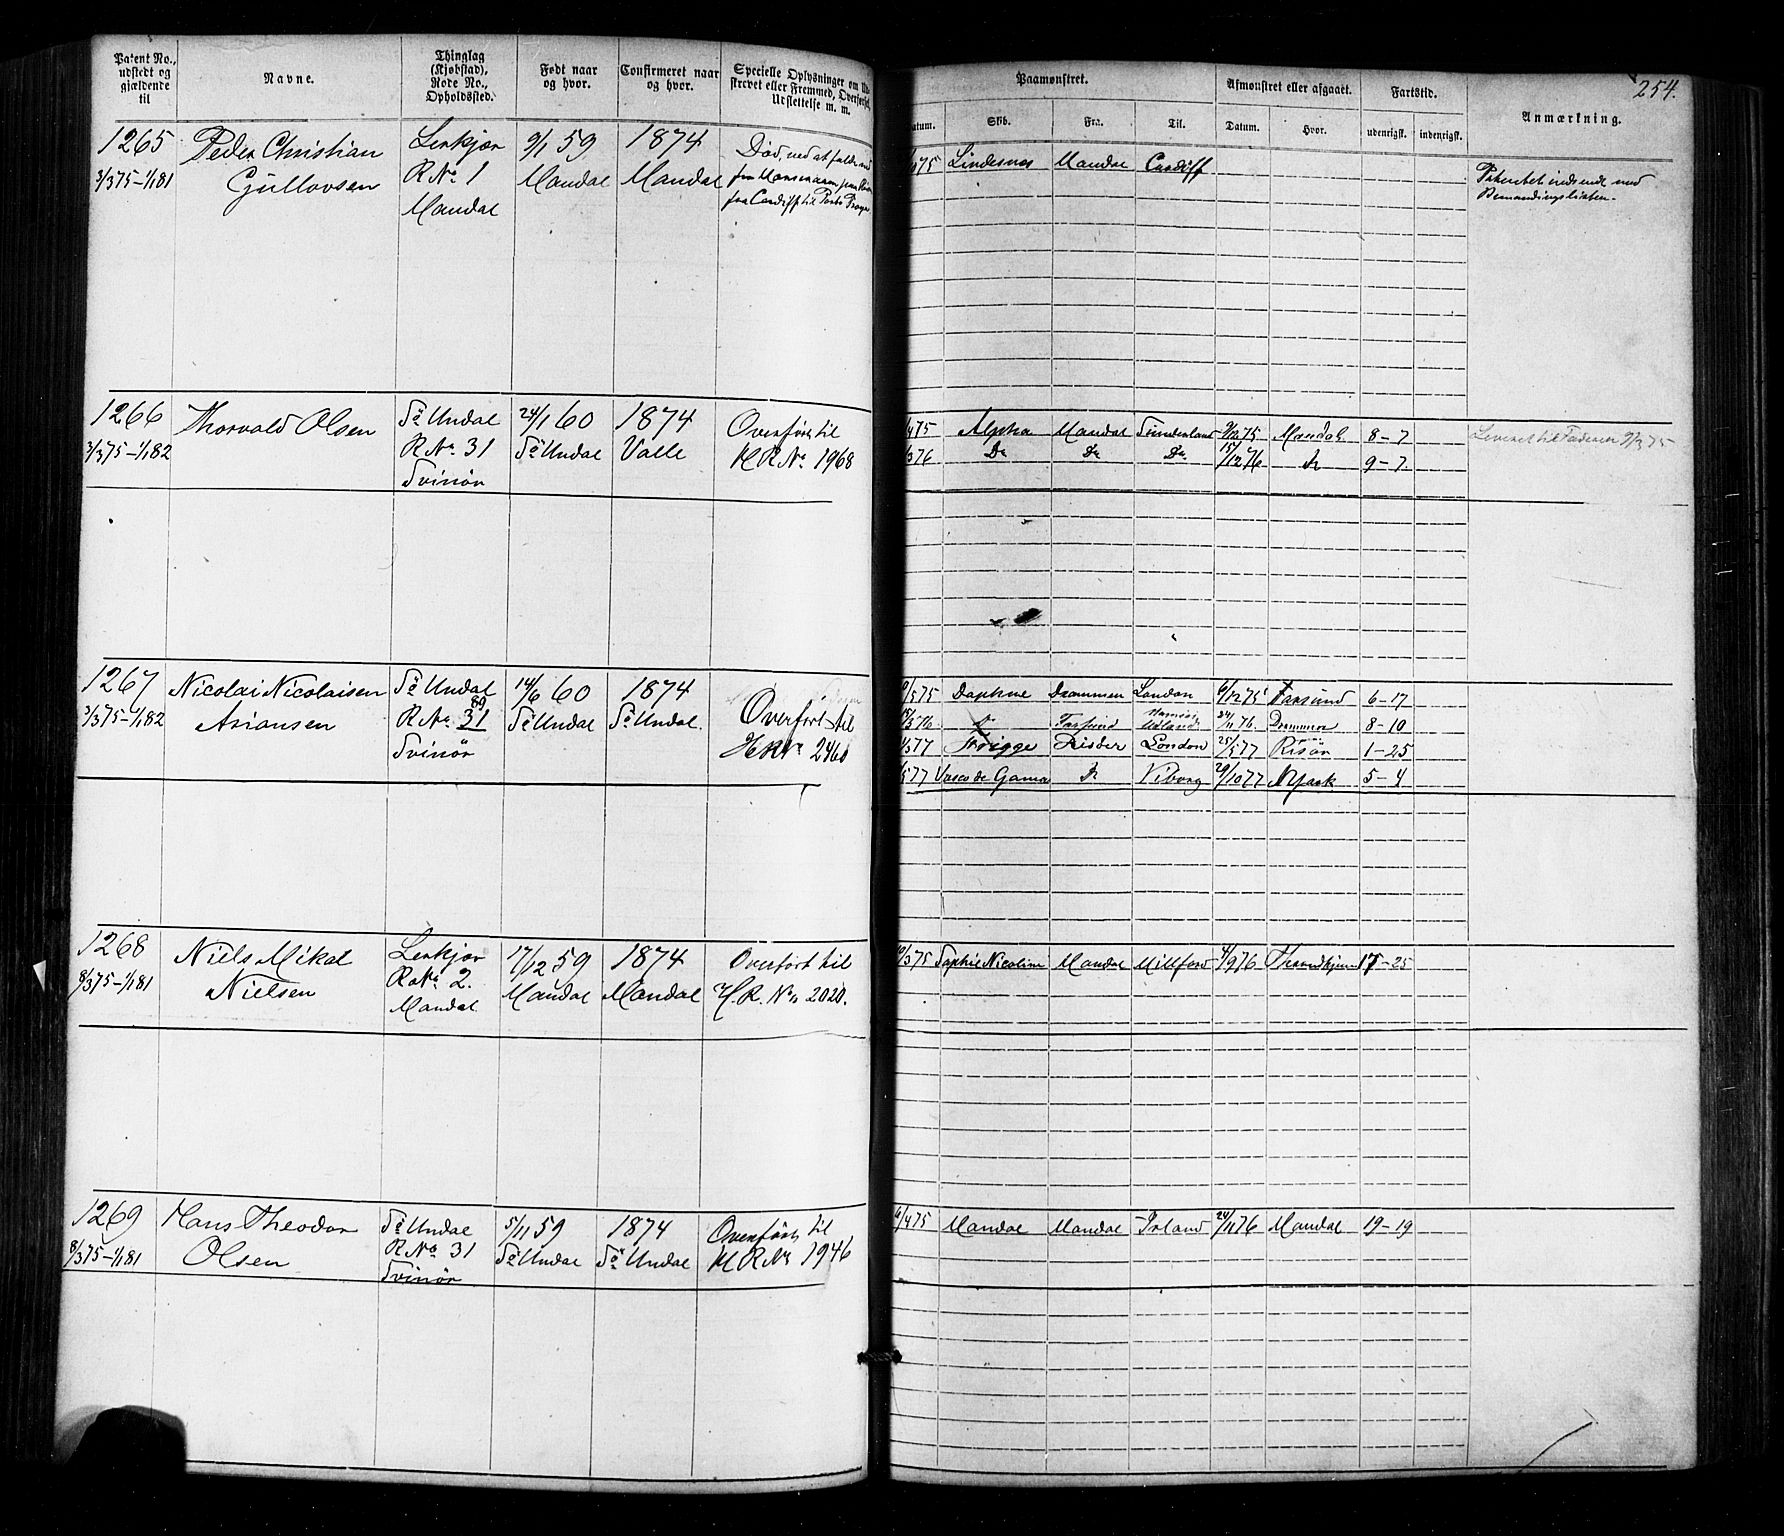 254.
Patent No., udstedt og gjældende til
Navne.
Thinglag (Kjøbstad), Rode No., Opholdssted.
Født naar og hvor.
Confirmeret naar og hvor.
Specielle Oplysninger om Ud-
skrevet eller Fremmed, Overførsel,
Udslettelse m. m.
Paamønstret.
Afmønstret eller afgaaet.
Fartstid.
Anmærkning.
Datum. Skib. Fra. Til. Datum. Hvor. udenrigsk. indenrigsk.
1265 Peder Christian Lenkjær 9/1 59 1874 Død, ved at falde ned
3/3 75-1/1 81 Gullovsen R No. 1 Mandal Mandal
Mandal fra Cardiff til
75 Lindesnæs Mandal Cardiff
Patentet indsendt med
Bemandingslisten.
1266 Thorvald Olsen Sø Undal 24/1 60 1874 Overført til
3/3 75-1/1 82 R No. 31 Sø Undal Valle H R No. 1968
Svinør
/4 75 Alpha Mandal Sunderland 9/12 75 Mandal 8-7 Leveret til Faderen
/3 76 Do Do Do 15/12 76 Do 9-7
1267 Nicolai Nicolaisen Sø Undal 14/6 60 1874 Overført til
3/3 75-1/1 82 Asiansen R No. 31 89 Sø Undal Sø Undal H R No 2460
Svinør
/5 75 Daphne Drammen London 6/12 75 Farsund 6-17
/3 76 Do Farsund Udland 24/11 76 Drammen 8-10
/3 77 London 25/5 77 Risør 1-25
/5 77 Vasco de Gama Do Viborg 29/10 77 N York 5-4
1268 Niels Mikal Lenkjær 17/12 59 1874 Overført til
8/3 75-1/1 81 Nielsen R No. 2. Mandal Mandal H. R. No. 2020.
Mandal
/3 75 Sophie Nicoline Mandal Millford 4/9 76 17-25
1269 Hans Theodor Sø Undal 5/11 59 1874 Overført til
8/3 75-1/1 81 Olsen R No. 31 Sø Undal Sø Undal H R No 1946
Svinør
6/4 75 Mandal Mandal Irland 24/11 76 Mandal 19-19